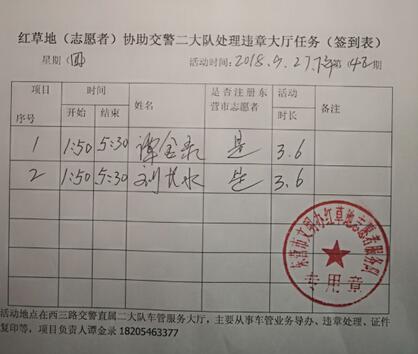 红草地（志愿者）协助交警二大队处理违章大厅任务（签到表）
星期（四） 活动时间：2018.9.27.下午第148期
项目 时间 姓名 是否注册东营市志愿者 活动时长 备注
序号 开始 结束
1 1:50 5:30 谭金录 是 3.6
2 1:50 5:30 刘长水 是 3.6
东营市文明办红草地志愿者服务队
专用章
活动地点在西三路交警直属二大队车管服务大厅，主要从事车管业务导办、违章处理、证件
复印等，项目负责人谭金录 18205463377